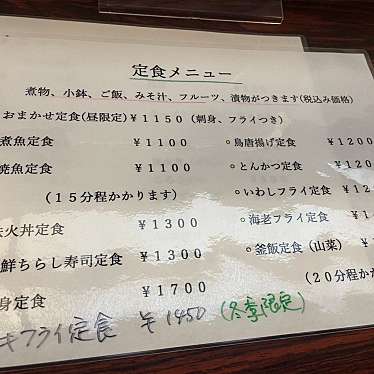 定食メニュー
煮物、小鉢、ご飯、みそ汁、フルーツ、漬物がつきます(税込み価格)
おまかせ定食(昼限定)￥1150(刺身、フライつき)
煮魚定食 ￥1100
焼魚定食 ￥1100
(15分程かかります)
火丼定食 ￥1300
鮮ちらし寿司定食 ￥1300
身定食 ￥1700
キフライ定食 ￥1450 (冬季限定)
○鳥唐揚げ定食 ￥1200
○とんかつ定食 ￥120
○いわしフライ定食
○海老フライ定食
○釜飯定食(山菜)
(20分程かか